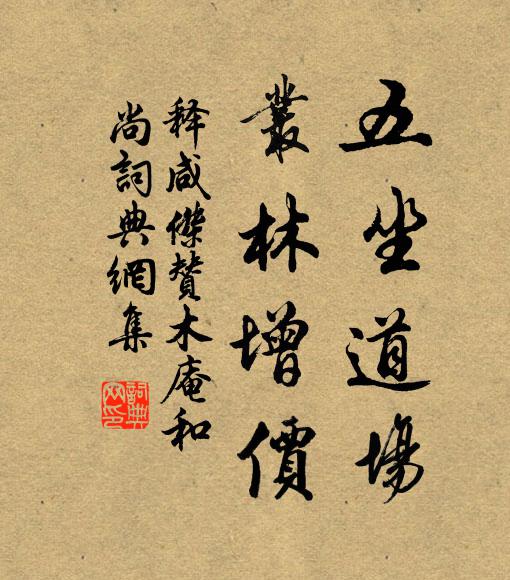 五坐道場
叢林增價
释咸傑赞木庵和
尚詞典網集
詞典
网印